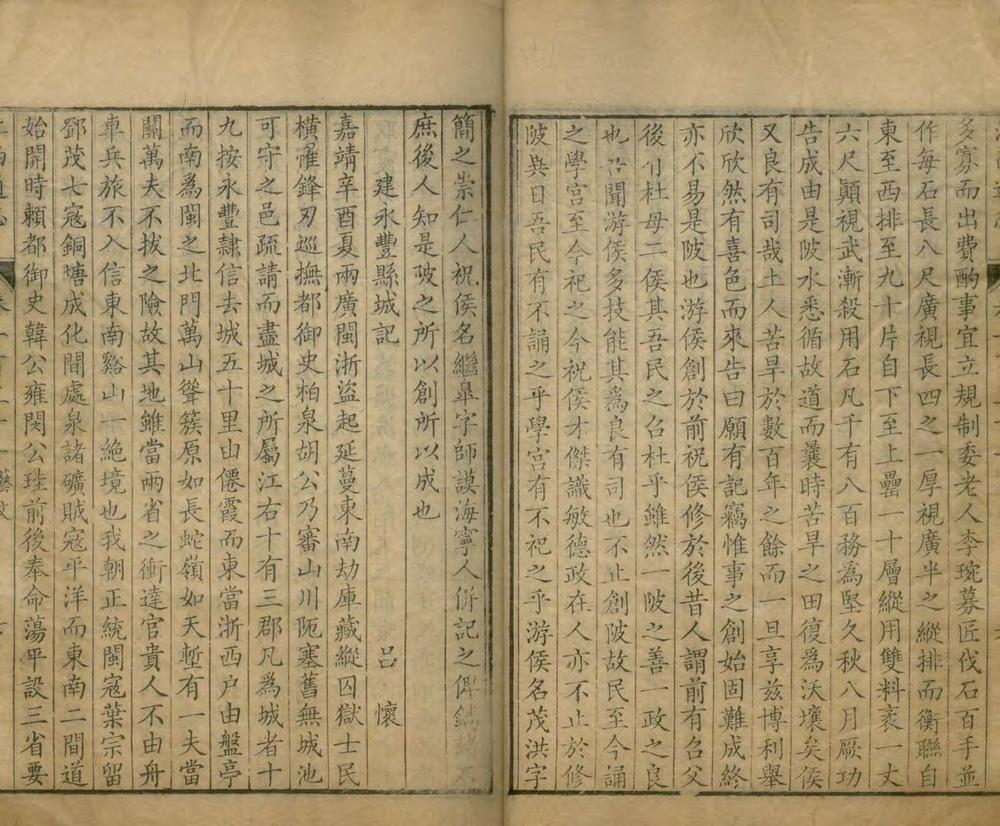 多寡而出費酌事宜立規制委老人李琬募匠伐石百手並
作每石長八尺廣視長四之一厚視廣半之縱排而衡聯自
東至西排至九十片自下至上壘一十層縱用雙料袤一丈
六尺顛視武漸殺用石凡千有八百務為堅久秋八月厥功
告成由是陂水悉循故道而曩時苦旱之田復為沃壤矣侯
又良有司哉土人苦旱於數百年之餘而一旦享茲博利舉
欣欣然有喜色而來告曰願有記竊惟事之創始固難成終
亦不易是陂也游侯創於前祝侯修於後昔人謂前有召父
後有杜母二侯其吾民之召杜乎雖然一陂之善一政之良
也吾聞游侯多技能其為良有司也不止創陂故民至今誦
之學宮至今祀之今祝侯才傑識敏德政在人亦不止於修
陂異日吾民有不誦之乎學宮有不祀之乎游侯名茂洪字
簡之崇仁人祝侯名繼皋字師謨海寧人併記之俾
庶後人知是陂之所以創所以成也
建永豐縣城記 呂懷
嘉靖辛酉夏兩廣閩浙盜起延蔓東南劫庫藏縱囚獄士民
橫罹鋒刃巡撫都御史柏泉胡公乃審山川阨塞舊無城池
可守之邑疏請而盡城之所屬江右十有三郡凡為城者十
九按永豐隸信去城五十里由僊霞而東當浙西戶由盤亭
而南為閩之北門萬山聳簇原如長蛇嶺如天塹有一夫當
關萬夫不拔之險故其地雖當兩省之衝達官貴人不由舟
車兵旅不入信東南谿山一絕境也我朝正統閩寇葉宗留
鄧茂七寇銅塘成化間處泉諸礦賊寇平洋而東南二間道
始開時賴都御史韓公雍閔公珪前後奉命蕩平設三省要